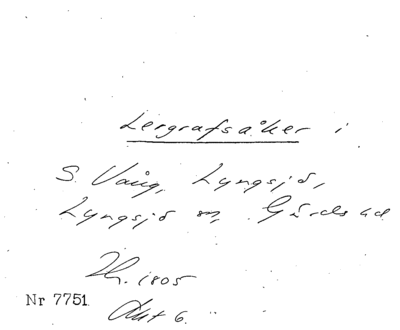 Lergrafsåker i
S. Vång, Lyngsjö,
Lyngsjö sn, Gärds hd
Nr 7751